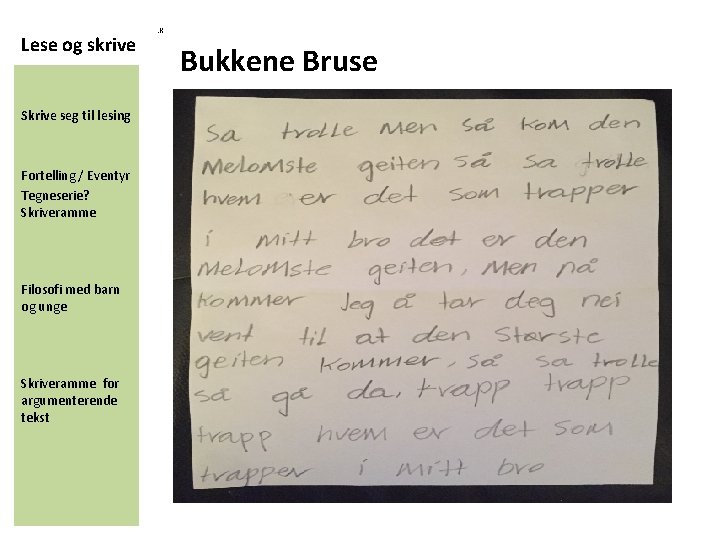 .R
Lese og skrive
Bukkene Bruse
Skrive seg til lesing
Fortelling / Eventyr
Tegneserie?
Skriveramme
Filosofi med barn
og unge
Skriveramme for
argumenterende
tekst
Sa trolle Men så kom den
Melomste geiten så sa trolle
hvem er det som trapper
i mitt bro det er den
Melomste geiten, Men nå
kommer Jeg å tar deg nei
vent til at den Største
geiten kommer, så sa trolle
så gå da, trapp trapp
trapp hvem er det som
trapper i mitt bro